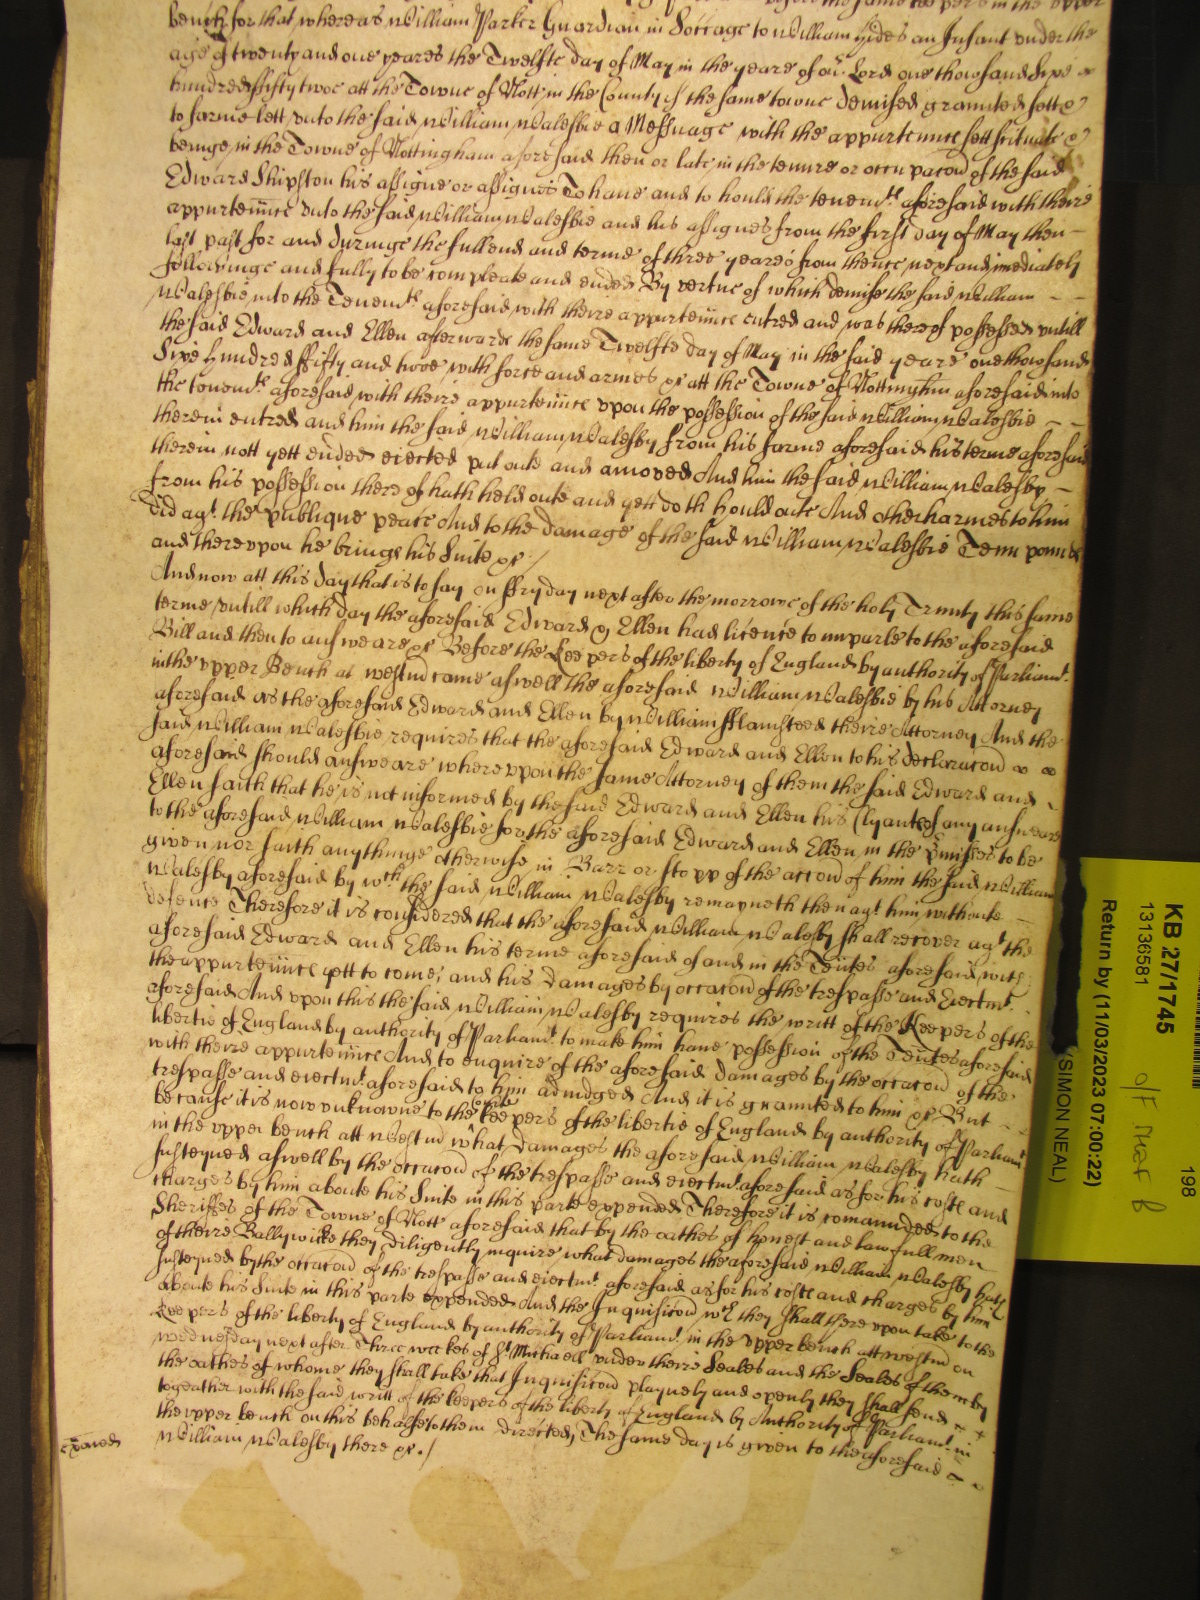 before the same keepers in the upper
bench for that whereas William Parker Guardian in Soccage to William Hides an Infant under the
age of twenty and one yeares the Twelfte day of May in the yeare of our Lord one thowsand Sixe
hundred fifty twoe att the Towne of Nott in the County of the same towne demised graunted sett &
to farme lett unto the said William Walesbie a Messuage with the appurtennce sett scituate &
beinge in the Towne of Nottingham aforesaid then or late in the tenure or occupacon of the said
Edward Shipston his assigne or assignes To have and to hould the tenemts aforesaid with theire
appurtennce unto the said William Walesbie and his assignes from the first day of May then
last past for and duringe the full end and terme of three yeares from thence next and imediately
followinge and fully to be compleate and ended By vertue of which demise the said William
Walesbie into the Tenemts aforesaid with theire appurtennce entred and was thereof possessed untill
the said Edward and Ellen afterwards the same Twelfte day of May in the said yeare one thowsand
Sixe hundred fifty and twoe with force and armes &c att the Towne of Nottingham aforesaid into
the tenemts aforesaid with theire appurtennce upon the possession of the said William Walesbie
therein entred and him the said William Walesby from his farme aforesaid his terme aforesaid
therein nott yett ended eiected put oute and amoved And him the said William Walesby
from his possession thereof hath held oute and yett doth hould oute And other harmes to him
did agt the publique peace And to the damage of the said William Walesbie Tenn pounds
and thereupon he brings his Suite &c /
And now att this day that is to say on ffryday next after the morrowe of the holy Trinity this same
terme untill which day the aforesaid Edward & Ellen had licence to imparle to the aforesaid
Bill and then to answeare &c Before the Keepers of the liberty of England by authority of Parliamt
in the upper Bench at westm came aswell the aforesaid William Walesbie by his Attorney
aforesaid as the aforesaid Edward and Ellen by William fflamsteed theire Attorney And the
said William Walesbie requires that the aforesaid Edward and Ellen to his declaracon
aforesaid should answeare whereupon the same Attorney of them the said Edward and
Ellen saith that he is not informed by the said Edward and Ellen his Clyants of any answeare
to the aforesaid William Walesbie for the aforesaid Edward and Ellen in the pmisses to be
given nor saith anythinge otherwise in Barr or stopp of the accon of him the said William
Walesby aforesaid by wch the said William Walesby remayneth then agt him withoute
defence Therefore it is considered that the aforesaid William Walesby shall recover agt the
aforesaid Edward and Ellen his terme aforesaid of and in the Tentes aforesaid with
the appurtennce yett to come, and his damages by occacon of the trespasse and Eiectmt
aforesaid And upon this the said William Walesby requires the writt of the Keepers of the
libertie of England by authority of Parliamt to make him have possession of the Tentes aforesaid
with theire appurtennce And to enquire of the aforesaid damages by the occacon of the
trespasse and eiectmt aforesaid to him adiudged And it is graunted to him &c But
because it is now unknowne to the Keepers of the libertie of England by authority of Parliamt
in the upper bench att Westm what damages the aforesaid William Walesby hath
susteyned aswell by the occacon of the trespasse and eiectmt aforesaid as for his coste and
charges by him aboute his Suite in this parte expended Therefore it is comaunded to the
Sheriffes of the Towne of Nott aforesaid that by the oathes of honest and lawfull men
of theire Ballywicke they diligently inquire what damages the aforesaid William Walesby hath
susteyned by the occacon of the trespasse and eiectmt aforesaid as for his coste and charges by him
aboute his Suite in this parte expended And the Inquisicon wch they shall thereupon take to the
Keepers of the liberty of England by authority of Parliamt in the upper bench att westm on
wednesday next after Three weekes of St Michaell under theire Seales and the Seales of them by
the oathes of whome they shall take that Inquisicon playnely and openly they shall send
togeather with the said writt of the keepers of the liberty of England by Authority of Parliamt in
the upper bench on this behalfe to them directed, The same day is given to the aforesaid
William Walesby there &c. /
KB 27/1745
13136581
Return by (11/03/2023 07:00:22)
(SIMON NEAL)
198